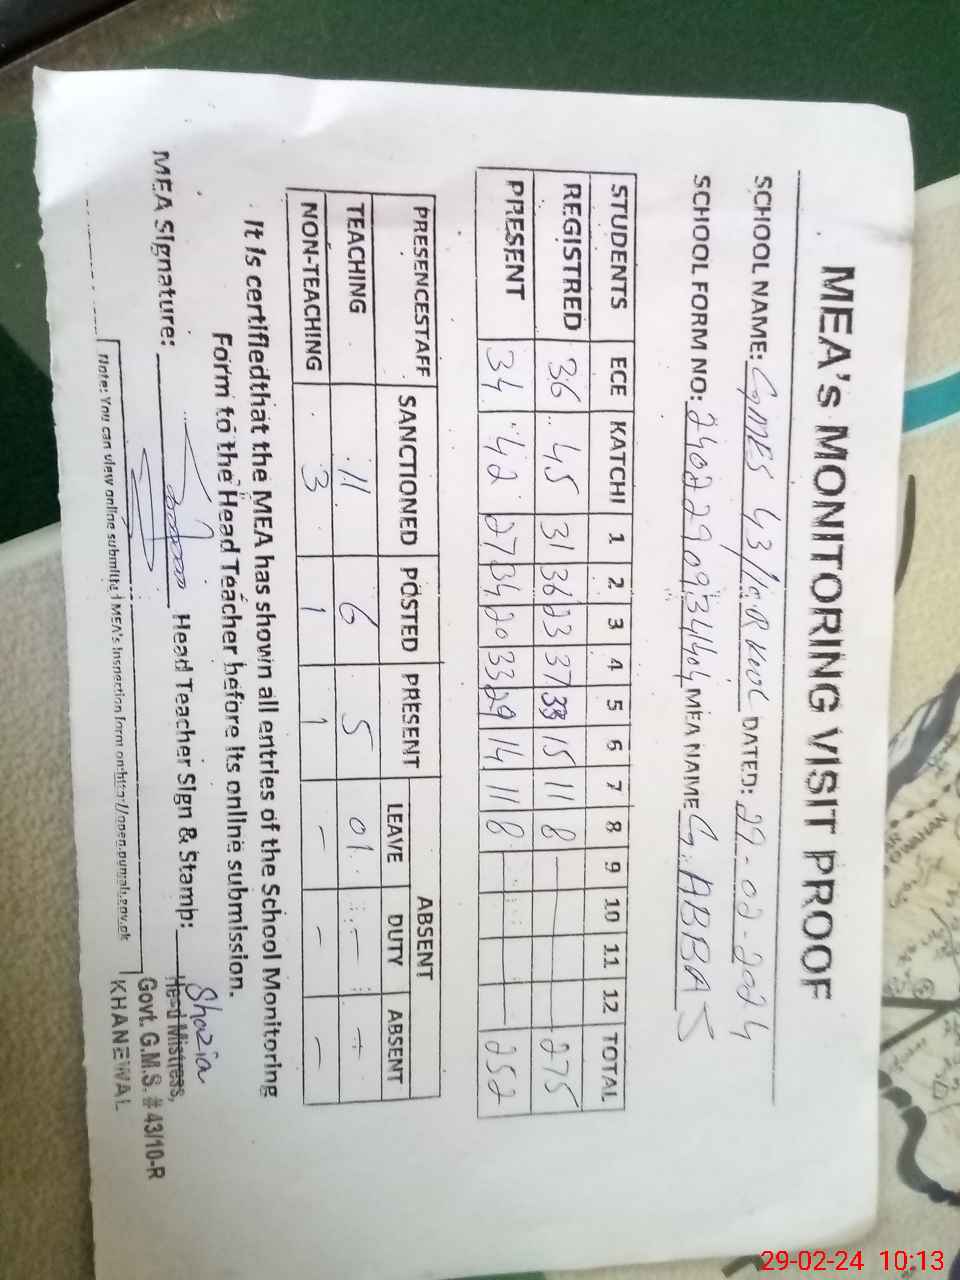 MEA's MONITORING VISIT PROOF
SCHOOL NAME: GMES 43/10R KWL DATED: 29-02-2024
SCHOOL FORM NO: 2402290934404 MEA NAME G. ABBAS
STUDENTS ECE KATCHI 1 2 3 4 5 6 7 8 9 10 11 12 TOTAL
REGISTRED 36 45 31 36 23 37 33 15 11 8 275
PRESENT 34 42 27 34 20 33 29 14 11 8 252
PRESENCESTAFF SANCTIONED POSTED PRESENT ABSENT
LEAVE DUTY ABSENT
TEACHING 11 6 5 01 - -
NON-TEACHING 3 1 1 - - -
It is certifiedthat the MEA has shown all entries of the School Monitoring
Form to the Head Teacher before its online submission.
MEA Signature: Head Teacher Sign & Stamb: Shazia
Head Mistress,
Govt. G.M.S. # 43/10-R
KHANEWAL
Note: You can view online submitted MEA's Inspection form on:http://open.punjab.gov.pk
29-02-24 10:13